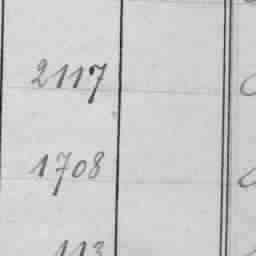 2117
1708
113